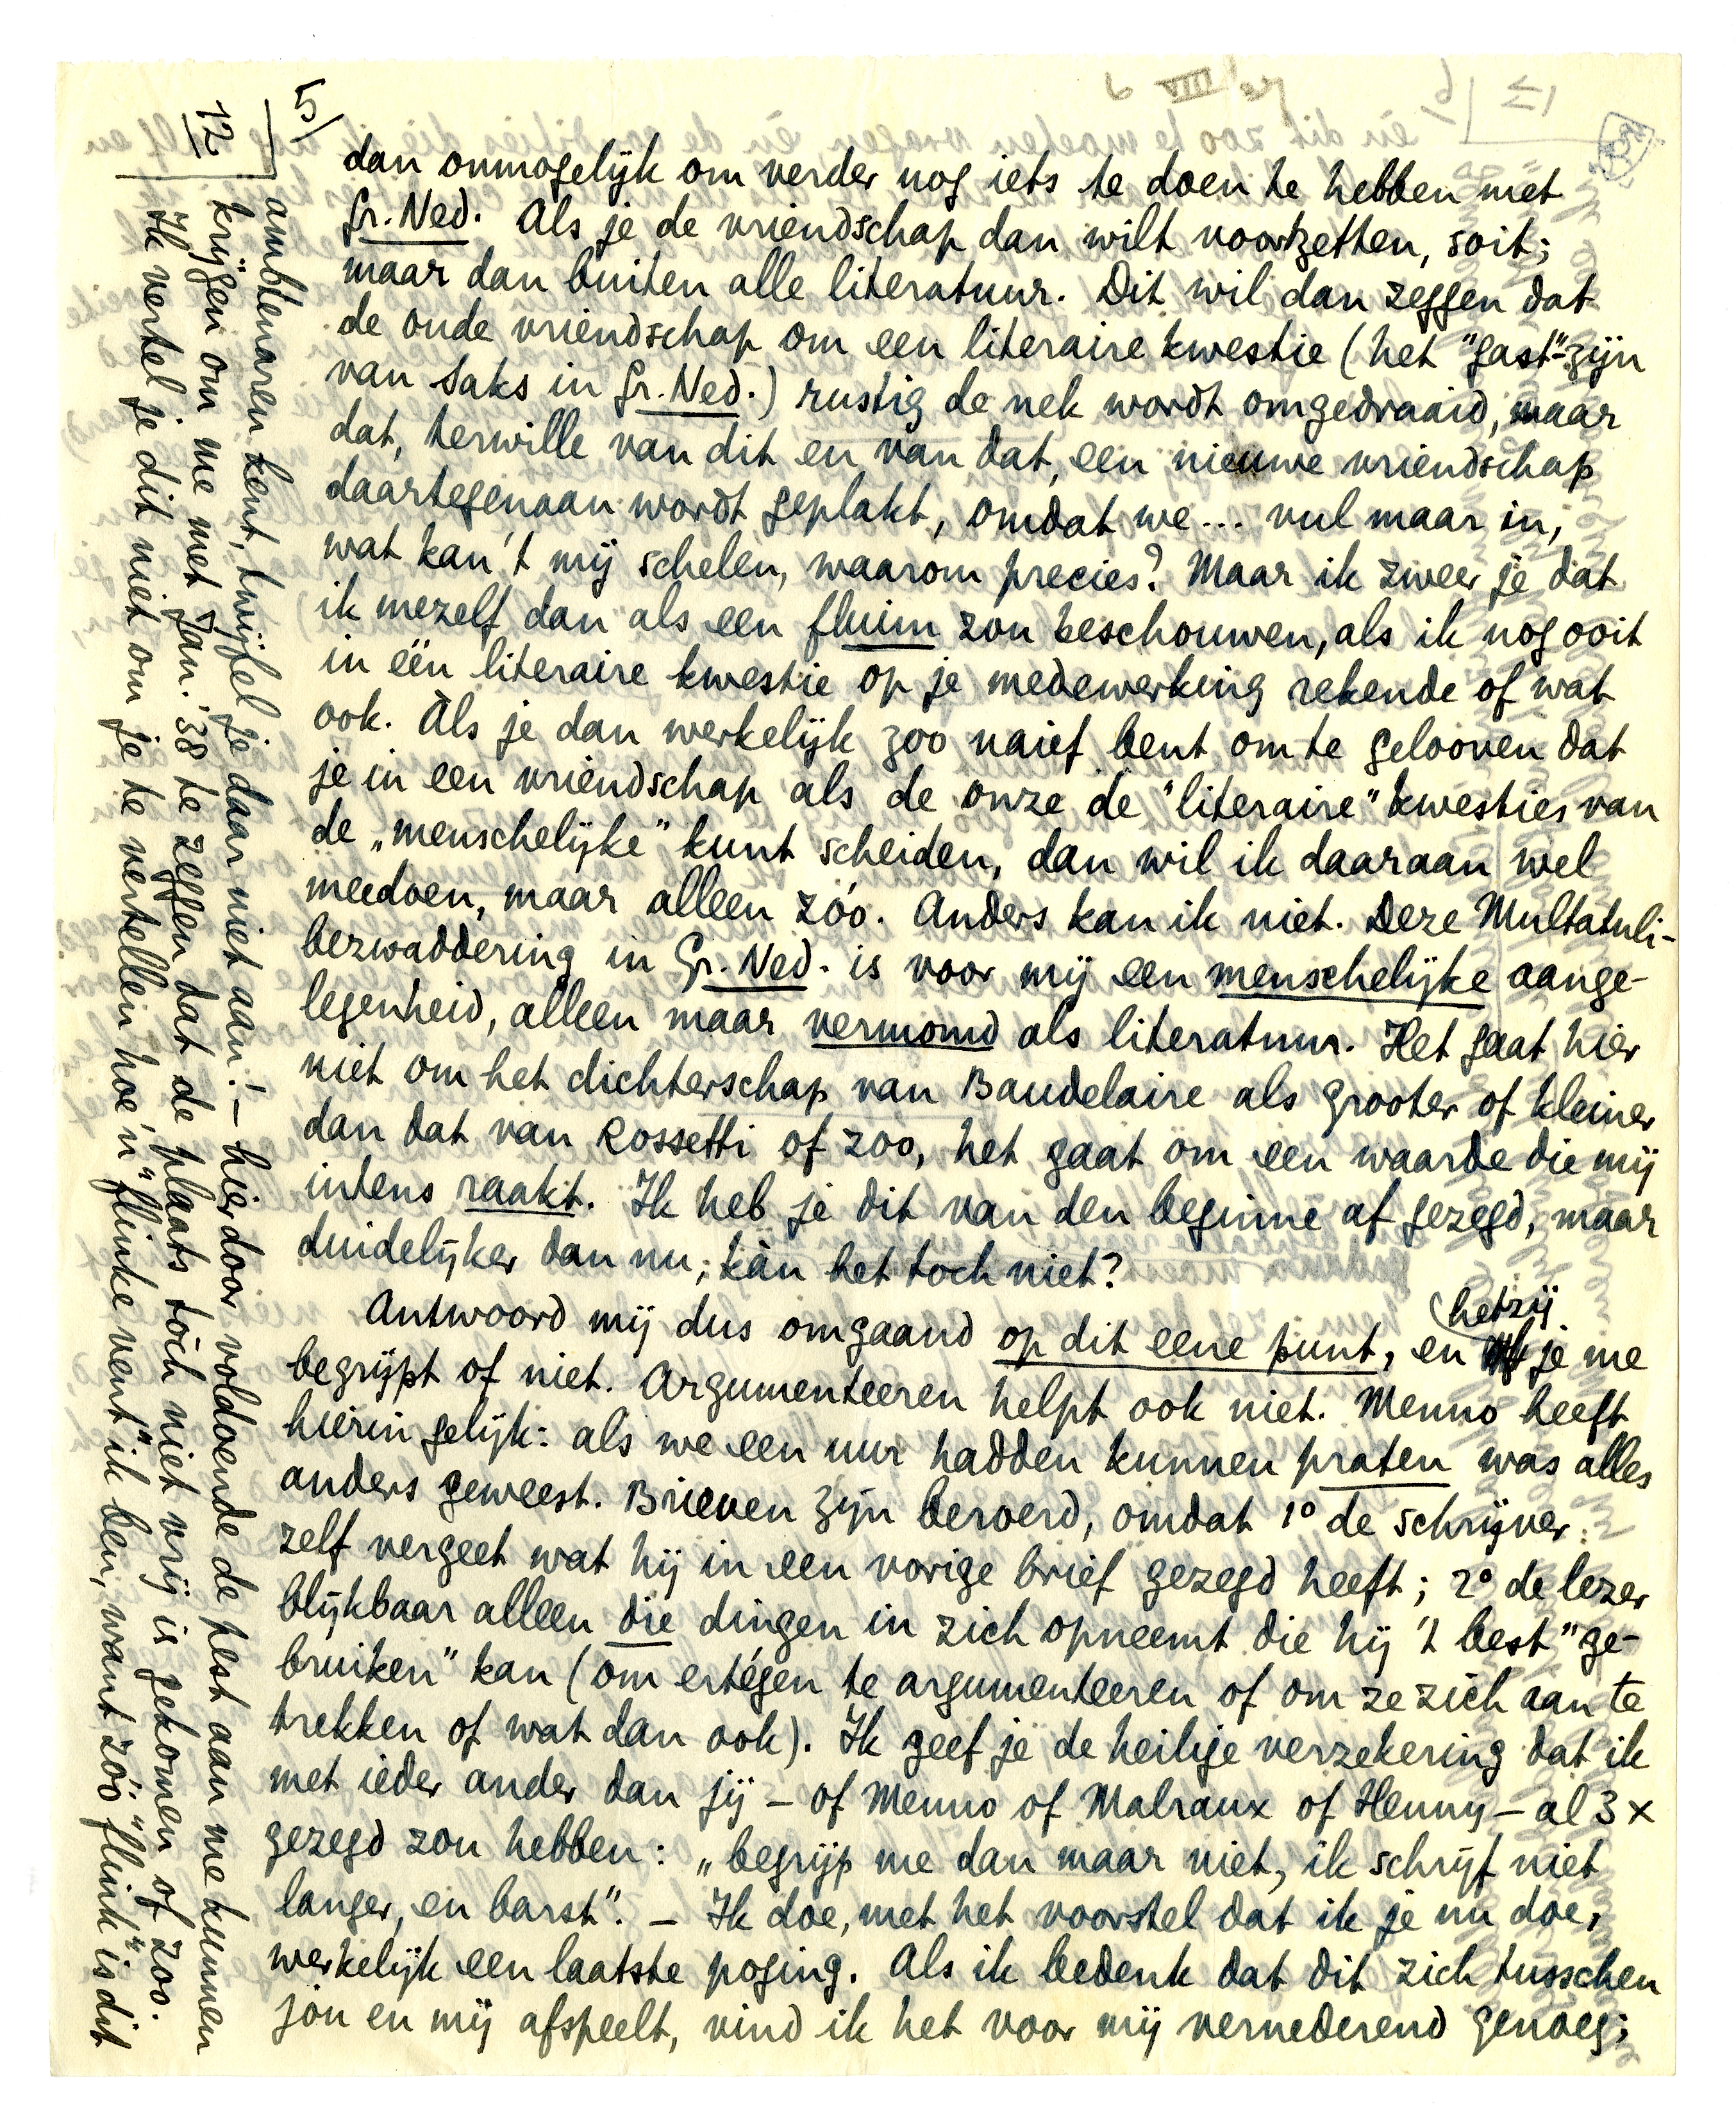 5/
dan onmogelijk om verder nog iets te doen te hebben met
Gr. Ned. Als je de vriendschap dan wilt voortzetten, soit;
maar dan buiten alle literatuur. Dit wil dan zeggen dat
de oude vriendschap om een literaire kwestie (het "gast"-zijn
van Saks in Gr. Ned.) rustig de nek wordt omgedraaid, maar
dat, terwille van dit en van dat, een nieuwe vriendschap
daartegenaan wordt geplakt, omdat we... vul maar in,
wat kan 't mij schelen, waarom precies? Maar ik zweer je dat
ik mezelf dan als een fluim zou beschouwen, als ik nog ooit
in één literaire kwestie op je medewerking rekende of wat
ook. Als je dan werkelijk zoo naief bent om te gelooven dat
je in een vriendschap als de onze de "literaire" kwesties van
de „menschelijke" kunt scheiden, dan wil ik daaraan wel
meedoen, maar alleen zóo. Anders kan ik niet. Deze Multatuli-
bezwaddering in Gr. Ned. is voor mij een menschelijke aange-
legenheid, alleen maar vermomd als literatuur. Het gaat hier
niet om het dichterschap van Baudelaire als grooter of kleiner
dan dat van Rossetti of zoo, het gaat om een waarde die mij
intens raakt. Ik heb je dit van den beginne af gezegd, maar
duidelijker dan nu, kàn het toch niet?
Antwoord mij dus omgaand op dit eene punt, en hetzij je me
begrijpt of niet. Argumenteeren helpt ook niet. Menno heeft
hierin gelijk: als we een uur hadden kunnen praten was alles
anders geweest. Brieven zijn beroerd, omdat 1° de schrijver
zelf vergeet wat hij in een vorige brief gezegd heeft; 2° de lezer
blijkbaar alleen die dingen in zich opneemt die hij 't best "ge-
bruiken" kan (om ertégen te argumenteeren of om ze zich aan te
trekken of wat dan ook). Ik geef je de heilige verzekering dat ik
met ieder ander dan jij – of Menno of Malraux of Henny – al 3 x
gezegd zou hebben: „begrijp me dan maar niet, ik schrijf niet
langer, en barst". – Ik doe, met het voorstel dat ik je nu doe,
werkelijk een laatste poging. Als ik bedenk dat dit zich tusschen
jou en mij afspeelt, vind ik het voor mij vernederend genoeg;
12
ambtenaren kent, twijfel je daar niet aan! – hierdoor voldoende de pest aan me kunnen
krijgen om me met Jan. '38 te zeggen dat de plaats tòch niet vrij is gekomen of zoo.
Ik vertel je dit niet om je te vertellen hoe 'n "flinke vent" ik ben, want zóo "flink" is dit